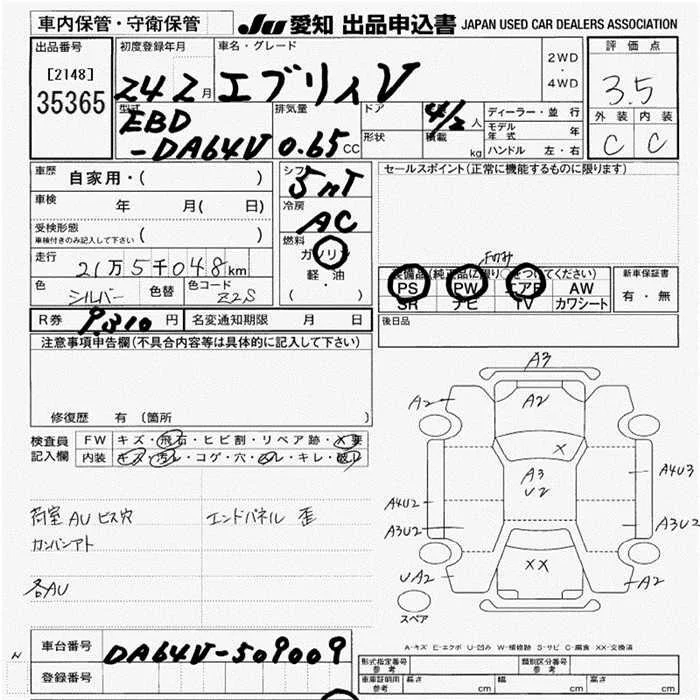 車内保管・守衛保管 JU 愛知 出品申込書 JAPAN USED CAR DEALERS ASSOCIATION
出品番号
[2148]
35365
初度登録年月
24 2月
車名・グレード
エブリィV
2WD
・
4WD
評価点
3.5
外装 内装
C C
型式
EBD
-DA64V
排気量
0.65 CC
ドア
形状
4/2人
積載 kg
ディーラー・並行
モデル年式 年
ハンドル 左・右
車歴 自家用・( )
車検 年 月( 日)
受検形態
車検付きのみ記入して下さい ( )
走行 21万5千048km
色 シルバー 色替 色コード Z2S
シフト
5MT
冷房
AC
燃料
ガソリン
軽・油
( ・ )
セールスポイント(正常に機能するものに限ります)
Fのみ
装備品(純正品に限り○をつけてください)
PS PW エアB AW
SR ナビ TV カワシート
新車保証書
有・無
後日品
R券 9,310円 名変通知期限 月 日
注意事項申告欄(不具合内容等は具体的に記入して下さい)
修復歴 有 (箇所 )
検査員
記入欄
FW キズ・飛石・ヒビ割・リペア跡・X要
内装 キズ・汚レ・コゲ・穴・ ・キレ・破レ
荷室AUビス穴 エンドパネル 歪
カンバンアト
各AU
A3
A2
A2
X
A3
U2
A4U3
A4U2
A3U2
A3U2
XX
UA2
A2
スペア
A-キズ E-エクボ U-凹み W-補修跡 S-サビ C-腐食 XX-交換済
車台番号 DA64V-509009
登録番号
形式指定番号
参考
類別区分番号
参考
車庫証明用
参考
長さ cm 幅 cm 高さ cm
N